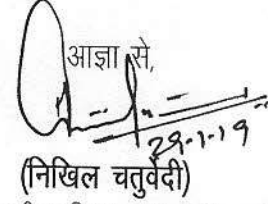 आज्ञा से,
29-1-19
(निखिल चतुर्वेदी)